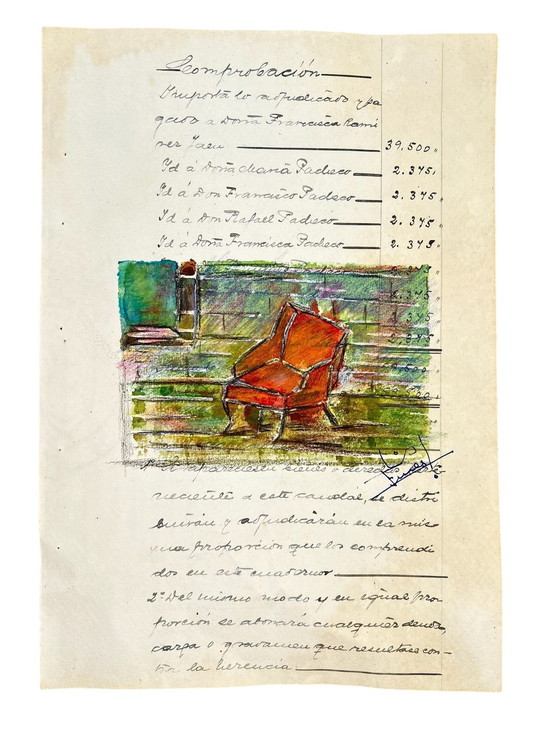 Comprobación
Importa lo adjudicado y pa
gado a Doña Francisca Rami
rez Jaen 39.500,,
Id á Doña Maria Pacheco 2.375,
Id á Don Francisco Pacheco 2.375,,
Id á Don Rafael Pacheco 2.375,,
Id á Doña Francisca Pacheco 2.375,,
2.375
2.375
2.375
2.375
bienes o
neciente a este caudal, se distri
buirán y adjudicarán en la mis
ma proporción que los comprendi
dos en este cuaderno
2ª Del mismo modo y en igual pro
porción se abonará cualquier deuda,
carga o gravamen que resultase con-
tra la herencia